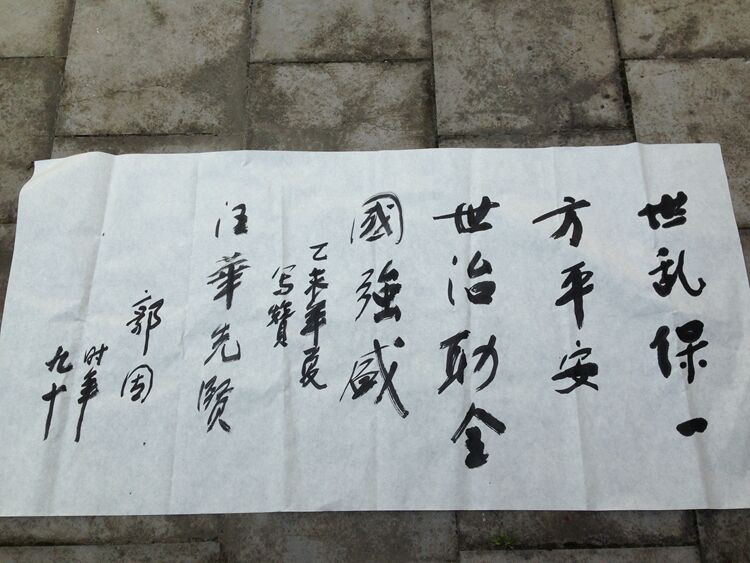 世乱保一
方平安
世治助全
國強盛
乙未年夏
写贊
汪華先贤
郭因
时年
九十